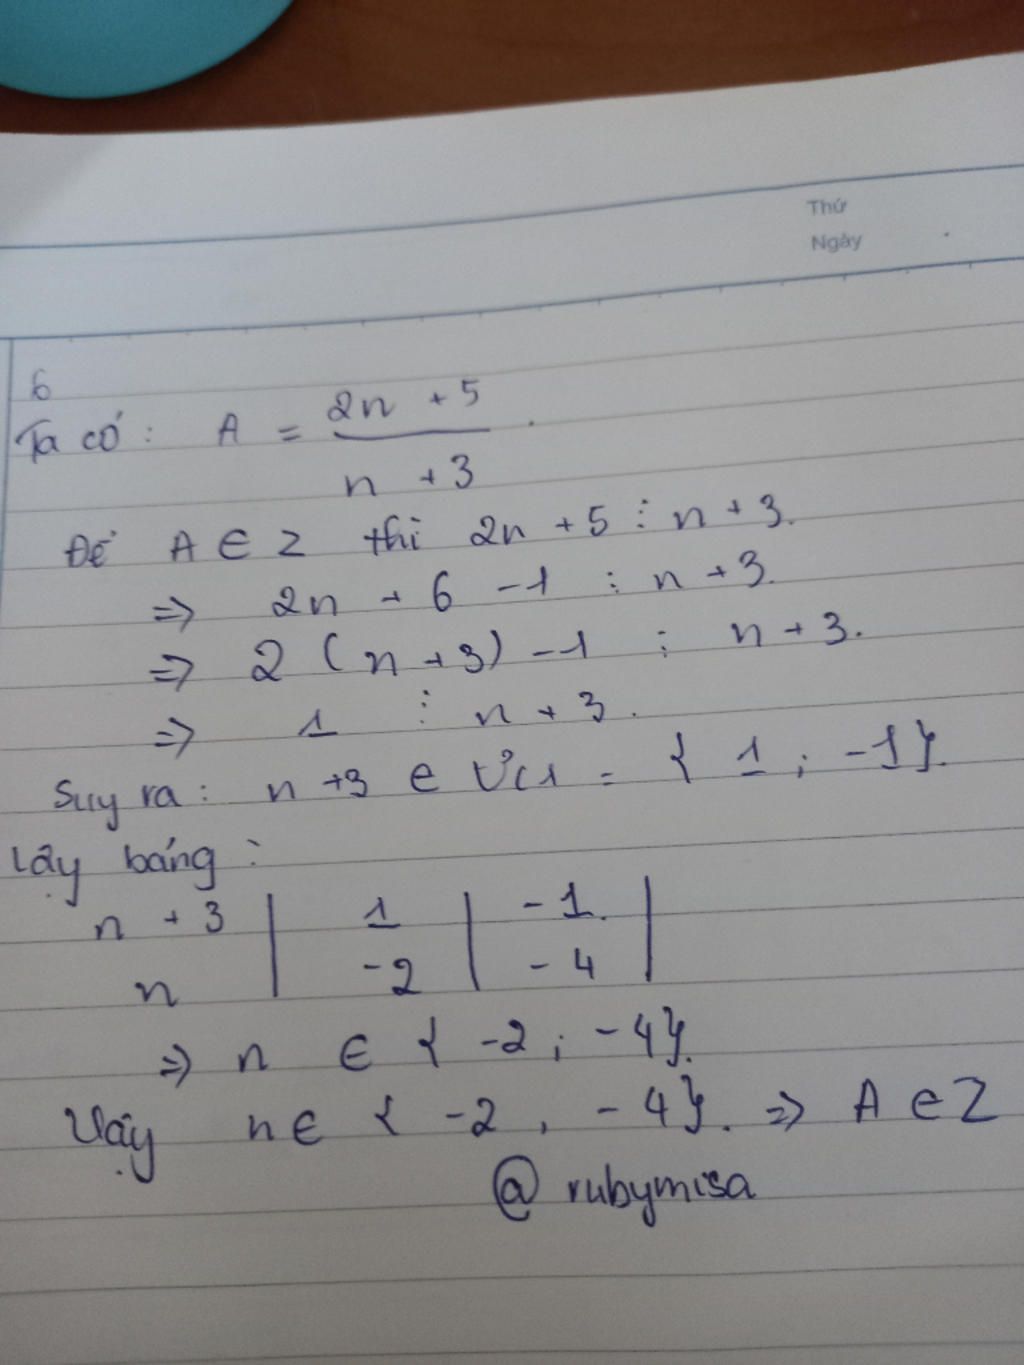 Thứ
Ngày
6
Ta có: A = (2n + 5) / (n + 3).
Để A ∈ Z thì 2n + 5 ⋮ n + 3.
=> 2n + 6 - 1 ⋮ n + 3.
=> 2 (n + 3) - 1 ⋮ n + 3.
=> 1 ⋮ n + 3.
Suy ra: n + 3 ∈ Ư(1 = { 1 ; -1}.
Lậy bảng:
n + 3 | 1 | -1. |
n | -2 | -4 |
=> n ∈ { -2 ; -4}.
Vậy n ∈ { -2 , -4}. => A ∈ Z
@ rubymisa